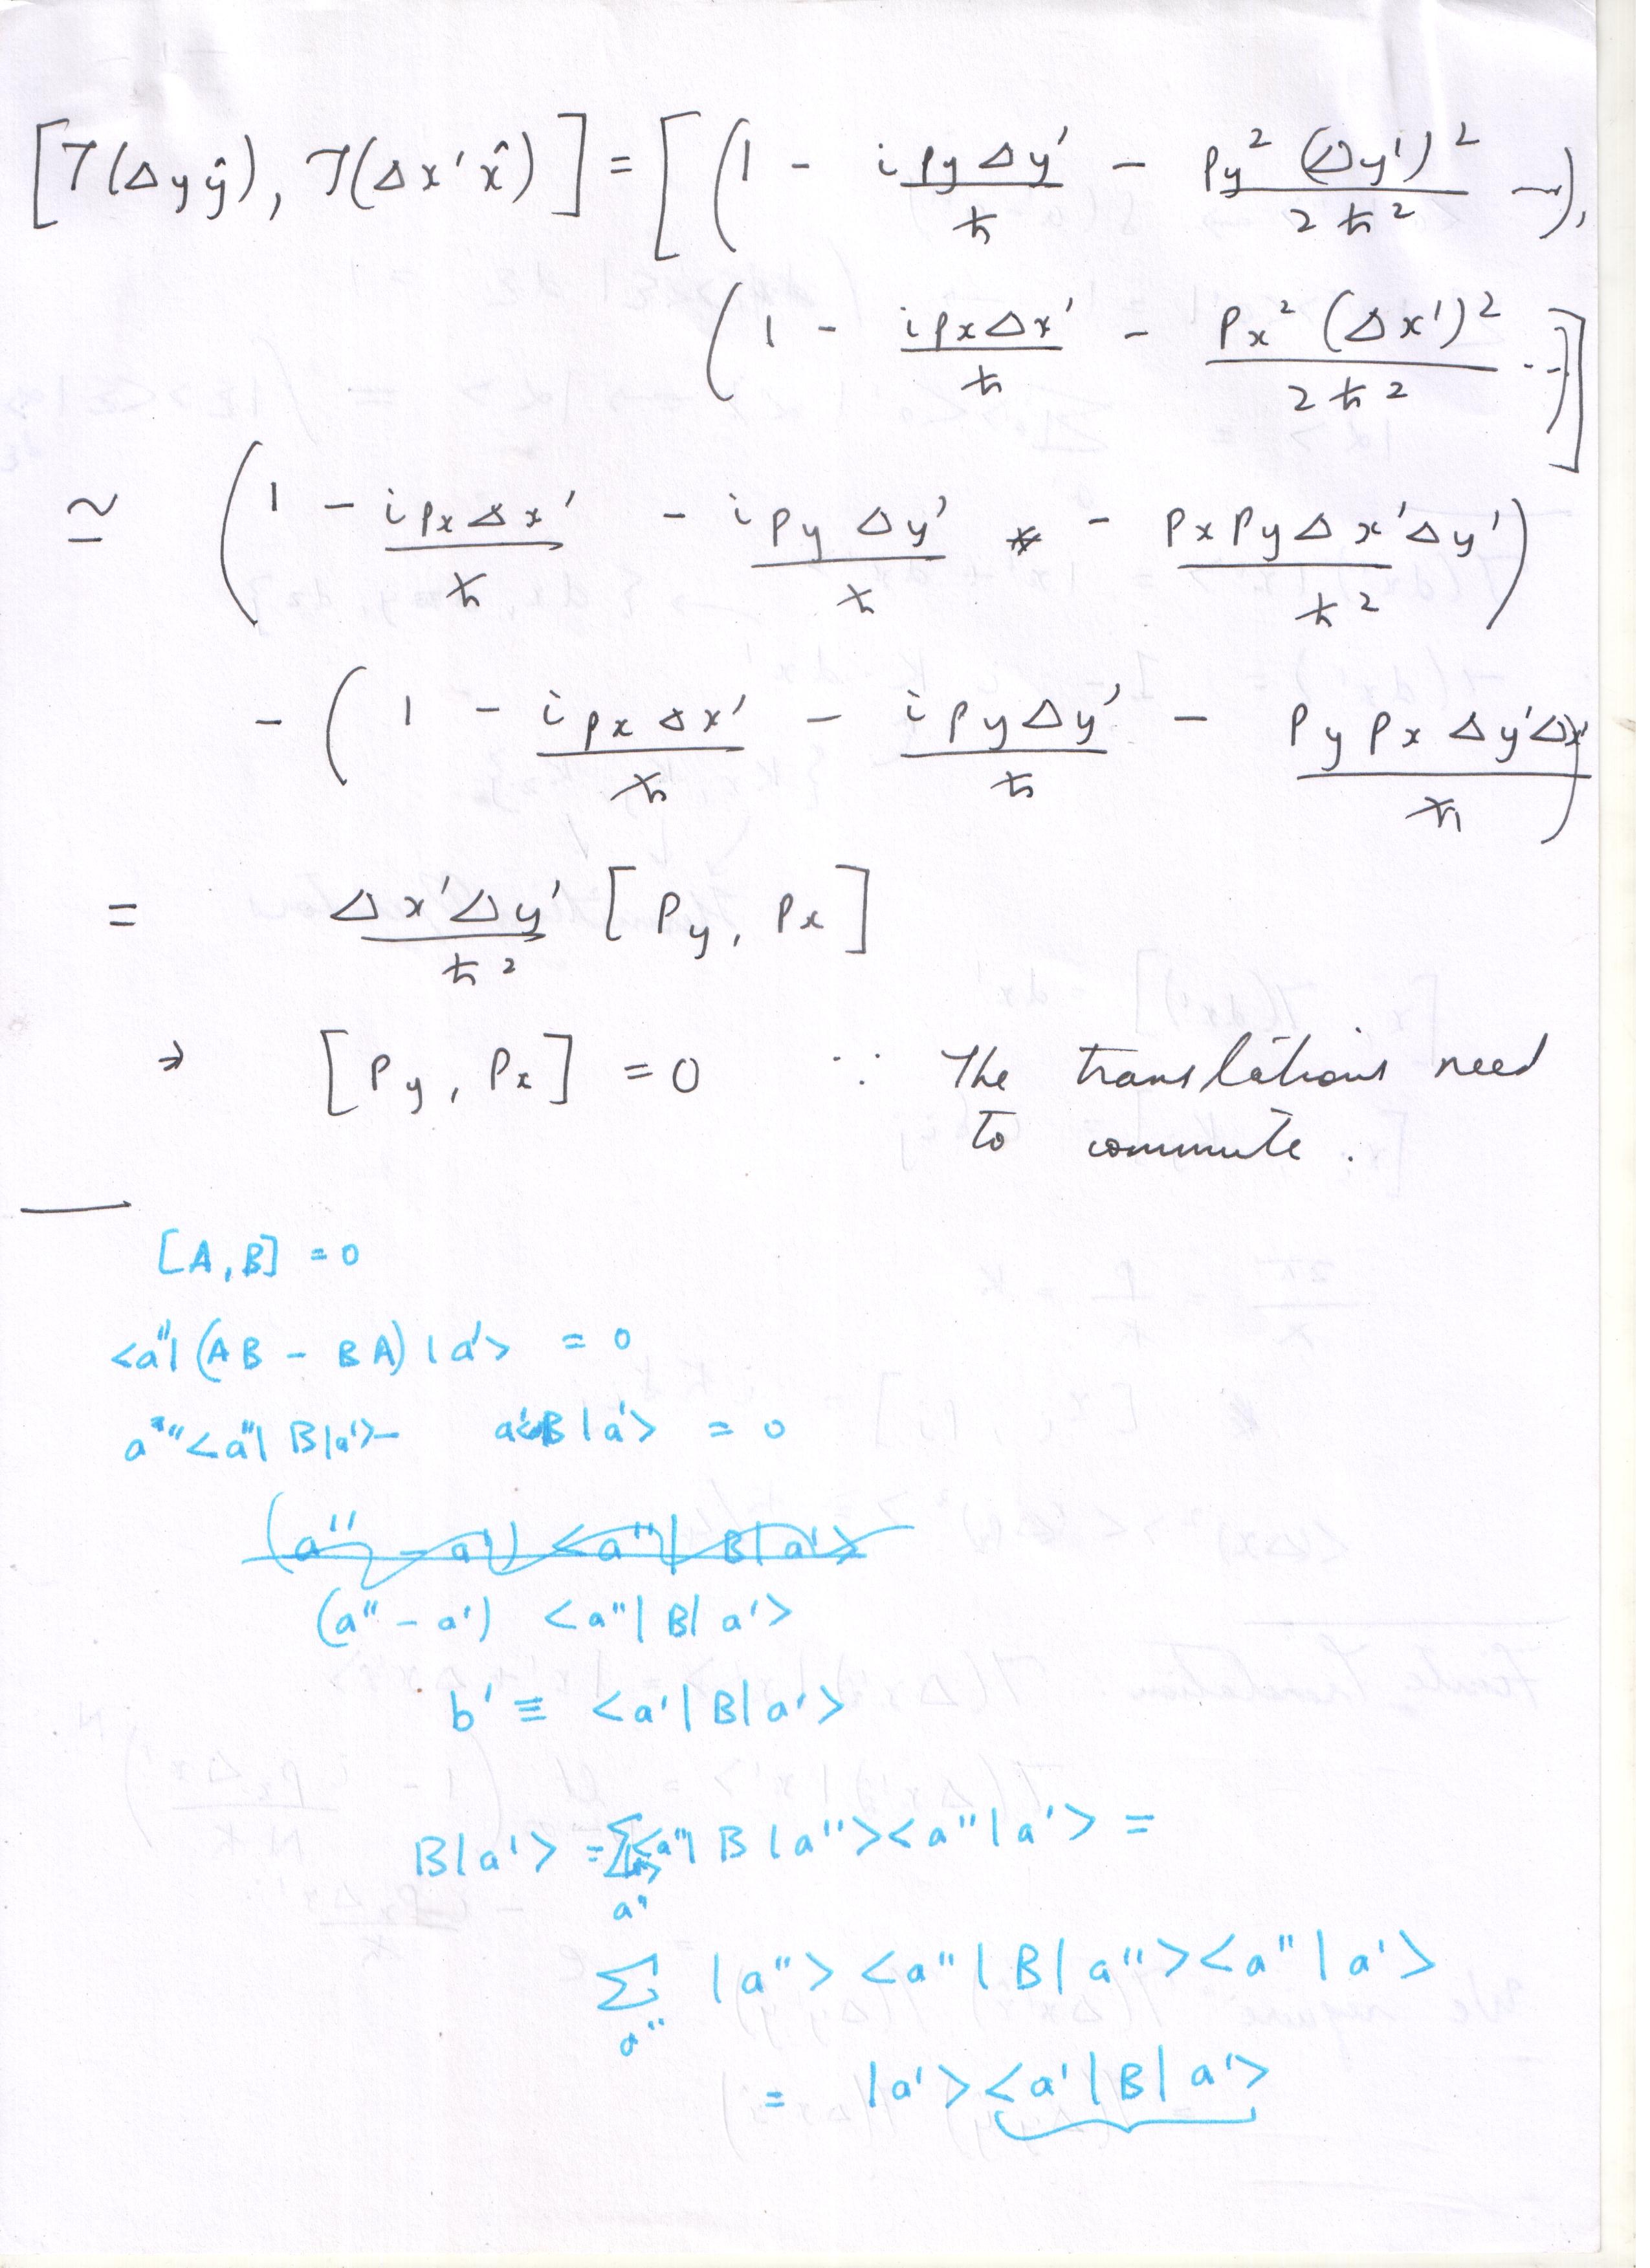 [T(Δyŷ), T(Δx'x̂)] = [(1 - ipyΔy'/ħ - py²(Δy')²/2ħ² ...),
(1 - ipxΔx'/ħ - px²(Δx')²/2ħ² ...)]
≃ (1 - ipxΔx'/ħ - ipyΔy'/ħ - pxpyΔx'Δy'/ħ²)
- (1 - ipxΔx'/ħ - ipyΔy'/ħ - pypxΔy'Δx'/ħ)
= Δx'Δy'/ħ² [Py, Px]
⇒ [Py, Px] = 0 ∵ The translations need
to commute.
[A, B] = 0
<a''|(AB - BA)|a'> = 0
a''<a''|B|a'> - a'<B|a'> = 0
(a'' - a') <a''|B|a'>
(a'' - a') <a''|B|a'>
b' ≡ <a'|B|a'>
B|a'> = Σ <a''|B|a''><a''|a'> =
a''
Σ |a''><a''|B|a''><a''|a'>
a''
= |a'><a'|B|a'>